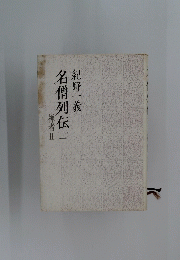 紀野一義
名僧列伝 一
禅者 II